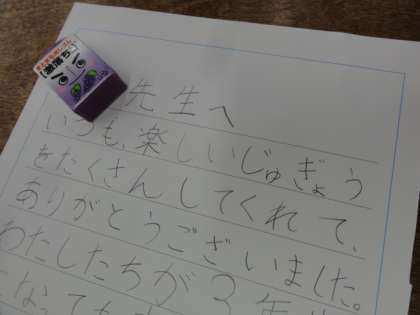 激落ち
先生へ
いつも、楽しいじゅぎょう
をたくさんしてくれて、
ありがとうございました。
わたしたちが3年生
になっても